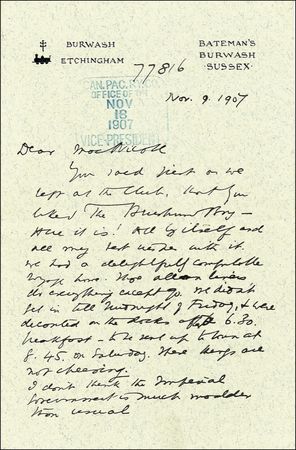 BURWASH
ETCHINGHAM
BATEMAN'S
BURWASH
SUSSEX.
77816
CAN. PAC. RY. CO.
OFFICE OF THE
NOV
18
1907
VICE-PRESIDENT
Nov. 9. 1907
Dear MacNicoll
You said just as we
left at the Club, that you
liked The Brushwood Boy —
Here it is! All by itself and
all my best wishes with it.
We had a delightfully comfortable
voyage home. The
everything except go. We didn't
get in till midnight of Friday, & were
decanted on the docks at 6.30.
breakfast - to be sent up to town at
8.45. on Saturday. These things are
not cheering.
I don't think the Imperial
Government is much madder
than usual